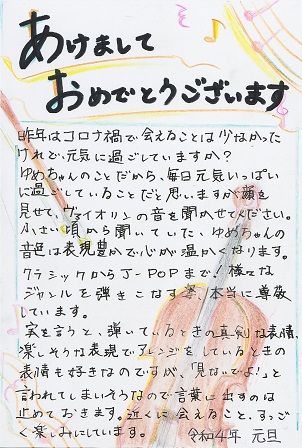 あけまして
おめでとうございます
昨年はコロナ禍で会えることは少なかった
けれど、元気に過ごしていますか?
ゆめちゃんのことだから、毎日元気いっぱい
に過ごしていることだと思いますが顔を
見せて、ヴァイオリンの音を聞かせてください。
小さい頃から聞いていた、ゆめちゃんの
音色は表現豊かで心が温かくなります。
クラシックからJ-POPまで!様々な
ジャンルを弾きこなす姿、本当に尊敬
しています。
実を言うと、弾いているときの真剣な表情、
楽しそうな表現でアレンジをしているときの
表情も好きなのですが、「見ないでよ!」と
言われてしまいそうなので言葉に出すのは
止めておきます。近くに会えること、すっご
く楽しみにしています。 令和4年 元旦